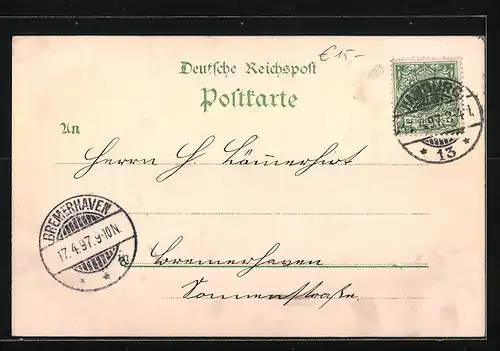 € 15,-
Deutsche Reichspost
Postkarte
An
Herrn H Bäumerhirt
Bremerhaven
Sonnenstraße.
BREMERHAVEN
17.4.97.9-10N.
* *
HAMBURG
* 13 *